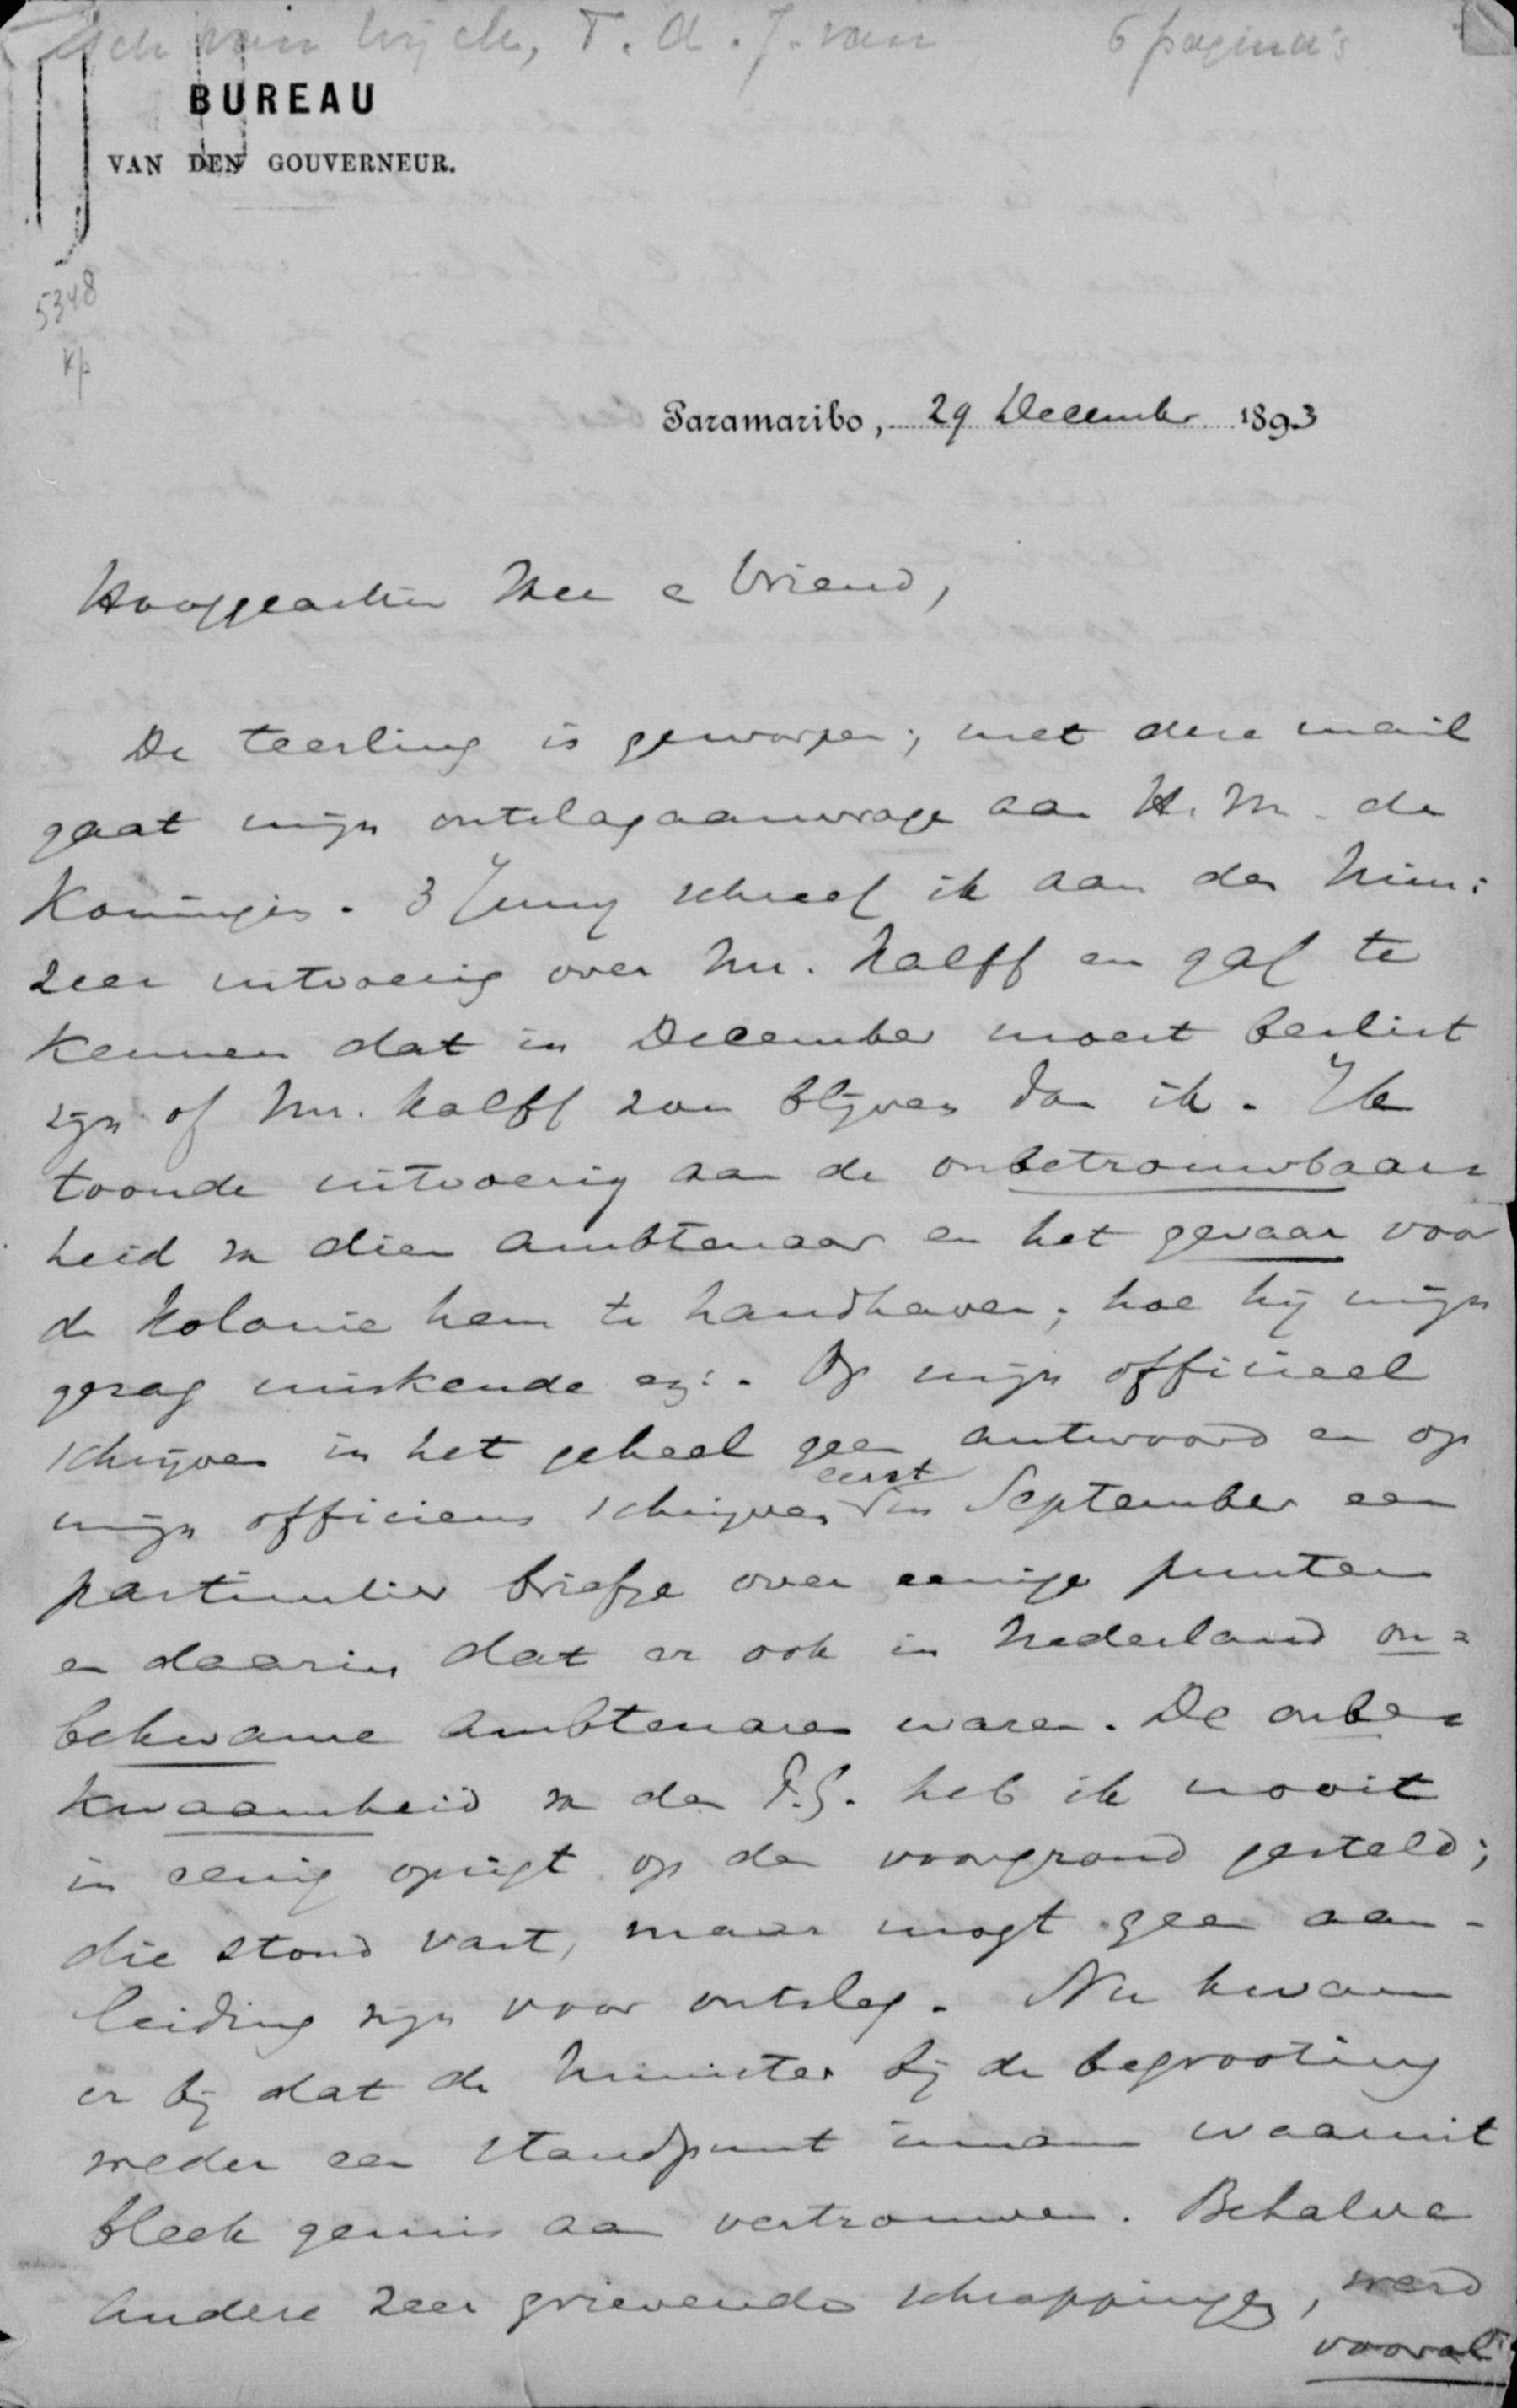 Asch van Wijck, T. A. J. van 6 pagina's
BUREAU
VAN DEN GOUVERNEUR.
5348
Kp
Paramaribo, 29 December 1893
Hooggeachte Heer & Vriend,
De teerling is geworpen; met deze mail
gaat mijn ontslagaanvrage aan H. M. de
Koningin. 3 Juny schreef ik aan den Min:
zeer uitvoerig over Mr. Kalff en gaf te
kennen dat in December moest beslist
zijn of Mr. Kalff zou blijven dan ik. Ik
toonde uitvoerig aan de onbetrouwbaar=
heid v. dien ambtenaar en het gevaar voor
de Kolonie hem te handhaven; hoe hij mijn
gezag miskende enz:. Op mijn officieel
schrijven in het geheel geen antwoord en op
mijn officieus schrijven eerst in September een
particulier briefje over eenige punten
en daarin dat er ook in Nederland on=
bekwame ambtenaren waren. De onbe=
kwaamheid v. den P.G. heb ik nooit
in eenig opzigt op den voorgrond gesteld;
die stond vast, maar mogt geen aan-
leiding zijn voor ontslag. Nu kwam
er bij dat de Minister bij de begrooting
weder een standpunt innam waaruit
bleek gemis aan vertrouwen. Behalve
andere zeer grievende schrappingen, werd
vooral